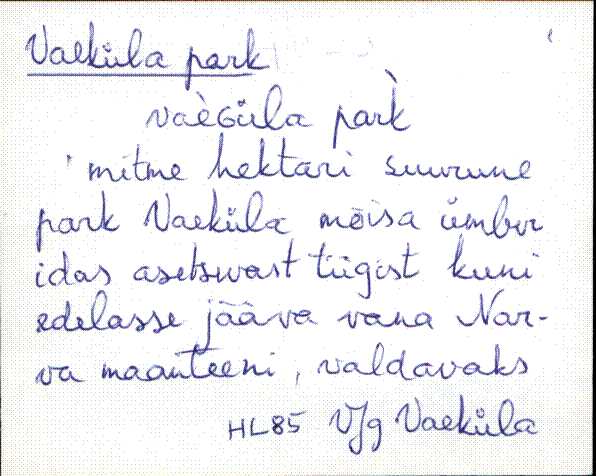 Vaeküla park
vaèɢüla park̀
mitme hektari suurune
park Vaeküla mõisa ümber
idas asetsevast tiigist kuni
edelasse jääva vana Nar-
va maanteeni, valdavaks
HL85 VJg Vaeküla